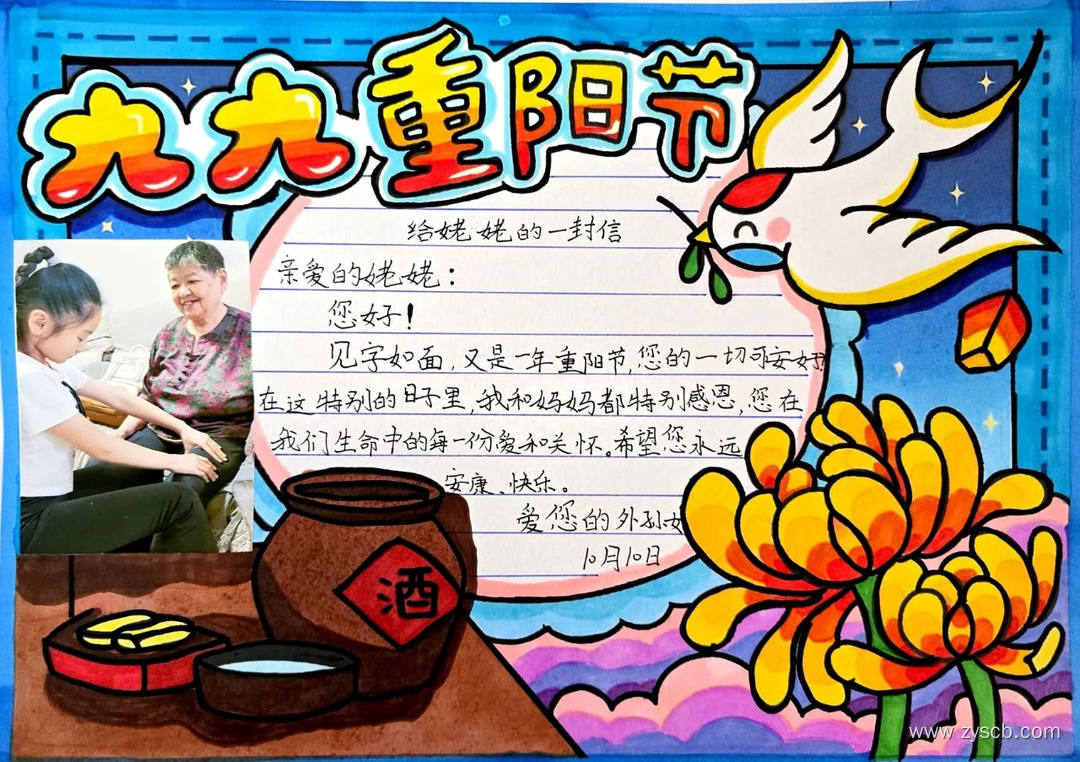 九九重阳节
给姥姥的一封信
亲爱的姥姥：
您好！
见字如面，又是一年重阳节，您的一切可安好？
在这特别的日子里，我和妈妈都特别感恩，您在
我们生命中的每一份爱和关怀。希望您永远
安康、快乐。
爱您的外孙女
10月10日
酒
www.zyscb.com